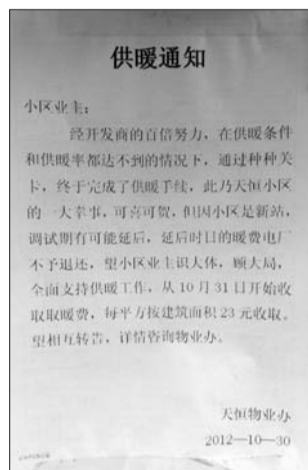 供暖通知
小区业主：
经开发商的百倍努力，在供暖条件
和供暖率都达不到的情况下，通过种种关
卡，终于完成了供暖手续，此乃天恒小区
的一大幸事，可喜可贺，但因小区是新站，
调试期有可能延后，延后时日的暖费电厂
不予退还，望小区业主识大体，顾大局，
全面支持供暖工作，从10月31日开始收
取取暖费，每平方按建筑面积23元收取。
望相互转告，详情咨询物业办。
天恒物业办
2012—10—30